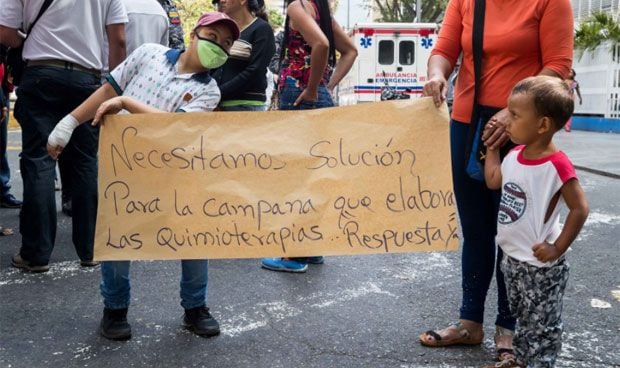 Necesitamos Solución
Para la campana que elabora
Las Quimioterapias.. Respuesta Ya
AMBULANCIA
EMERGENCIA